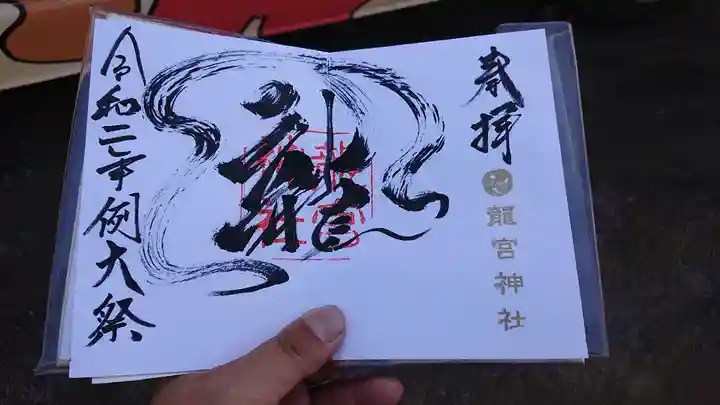 奉拝
龍宮神社
龍
令和二年例大祭